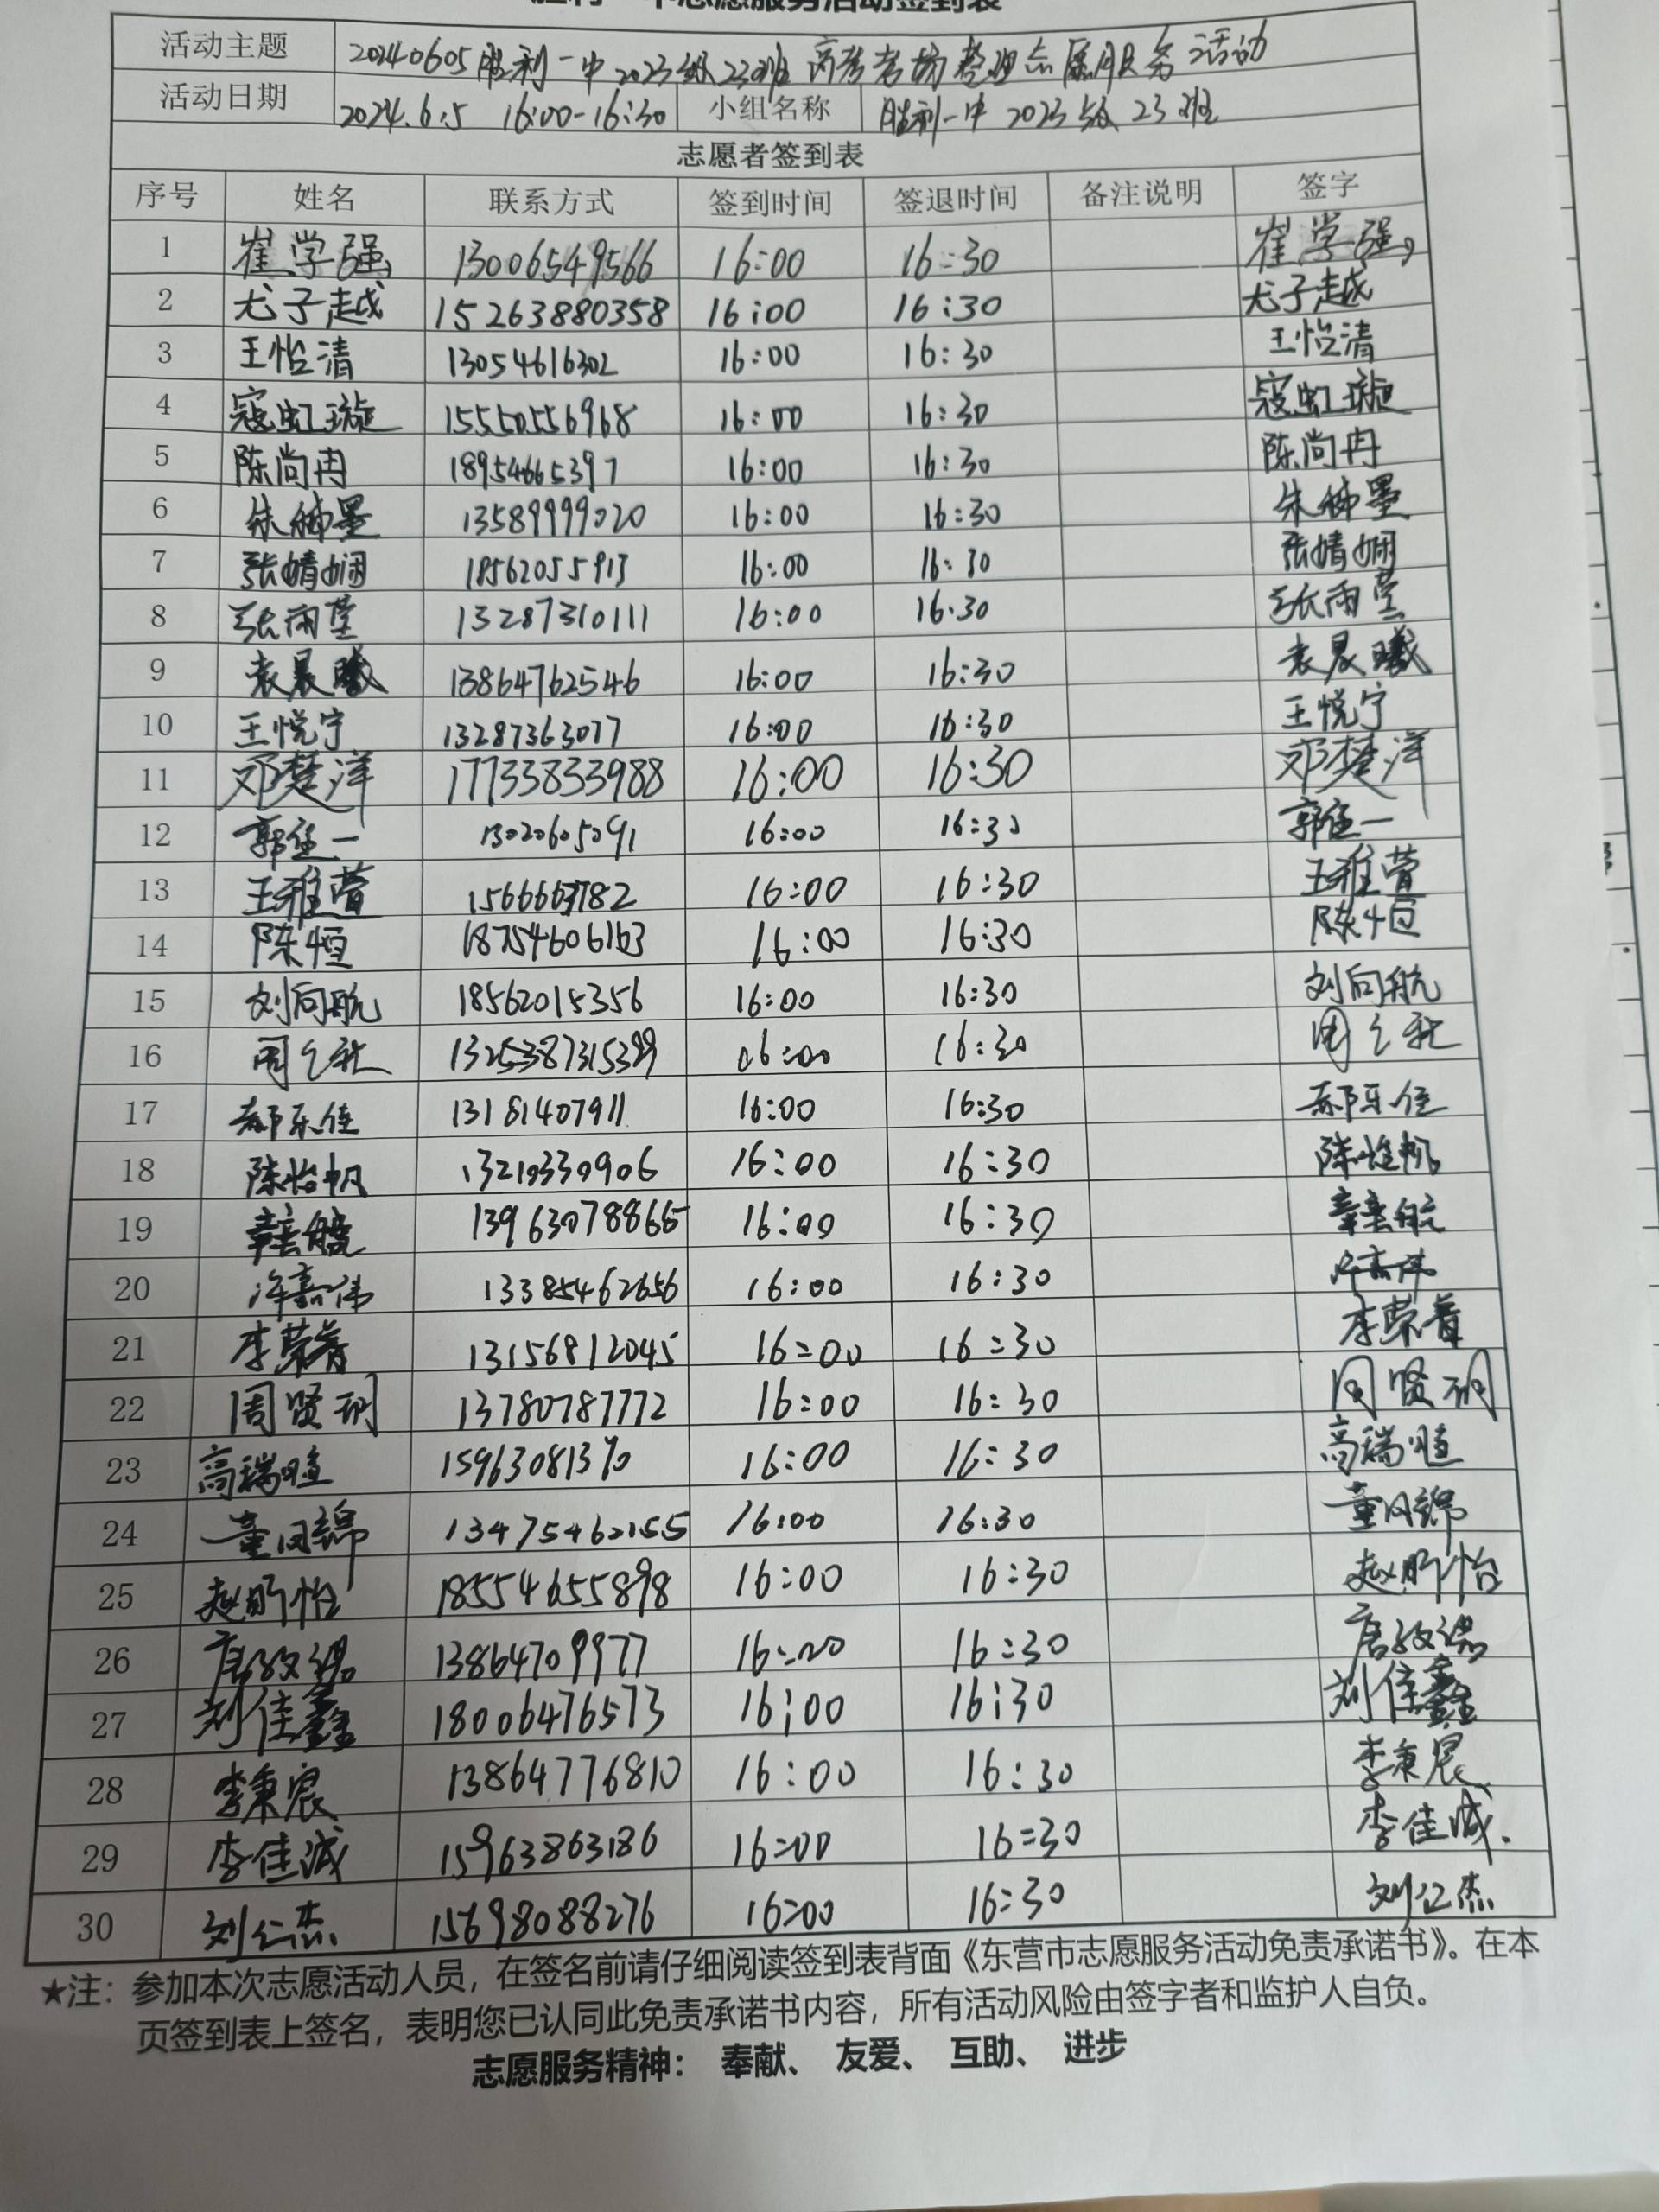 胜利一中志愿服务活动签到表
活动主题 20240605胜利一中2023级23班高考考场整理志愿服务活动
活动日期 2024.6.5 16:00-16:30 小组名称 胜利一中2023级23班
志愿者签到表
序号 姓名 联系方式 签到时间 签退时间 备注说明 签字
1 崔学强 13006549566 16:00 16:30 崔学强
2 尤子越 15263880358 16:00 16:30 尤子越
3 王怡清 13054616302 16:00 16:30 王怡清
4 寇虹璇 15550556968 16:00 16:30 寇虹璇
5 陈尚冉 18954665397 16:00 16:30 陈尚冉
6 朱 墨 13589999020 16:00 16:30 朱 墨
7 张婧娴 18562055913 16:00 16:30 张婧娴
8 张雨莹 13287310111 16:00 16:30 张雨莹
9 袁晨曦 13864762546 16:00 16:30 袁晨曦
10 王悦宁 13287363077 16:00 16:30 王悦宁
11 邓楚洋 17733833988 16:00 16:30 邓楚洋
12 郭 一 13020605091 16:00 16:30 郭 一
13 王雅萱 16:00 16:30 王雅萱
14 陈恒 18754606163 16:00 16:30 陈恒
15 刘向航 18562015356 16:00 16:30 刘向航
16 周 16:00 16:30 周
17 郝乐佳 13181407911 16:00 16:30 郝乐佳
18 陈怡帆 13210330906 16:00 16:30 陈怡帆
19 13963078865 16:00 16:30
20 许嘉伟 13385462656 16:00 16:30 许嘉伟
21 李荣 13156812045 16:00 16:30 李荣
22 周贤玥 13780787772 16:00 16:30 周贤玥
23 高瑞暄 16:00 16:30 高瑞暄
24 董 锦 13475462155 16:00 16:30 董 锦
25 赵昕怡 18554655898 16:00 16:30 赵昕怡
26 唐 13864709977 16:00 16:30 唐
27 刘佳鑫 18006476573 16:00 16:30 刘佳鑫
28 李秉宸 13864776810 16:00 16:30 李秉宸
29 李佳诚 15963863186 16:00 16:30 李佳诚.
30 刘仁杰 15698088276 16:00 16:30 刘仁杰
★注：参加本次志愿活动人员，在签名前请仔细阅读签到表背面《东营市志愿服务活动免责承诺书》。在本
页签到表上签名，表明您已认同此免责承诺书内容，所有活动风险由签字者和监护人自负。
志愿服务精神： 奉献、 友爱、 互助、 进步